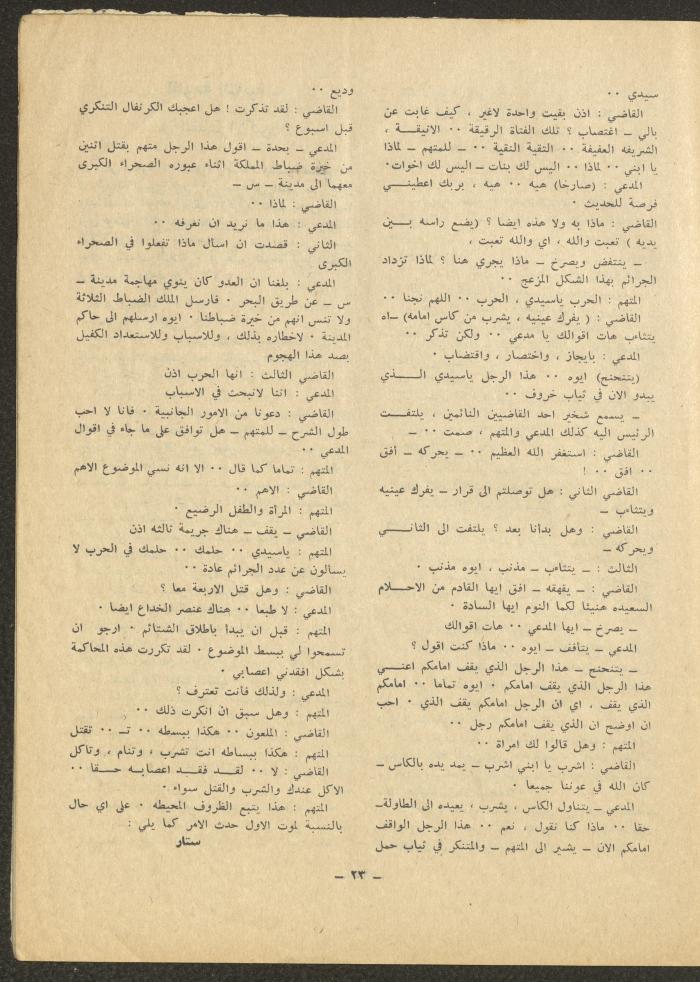 سيدي ٠٠
القاضي : اذن بقيت واحدة لاغير ، كيف غابت عن
بالي ــ اغتصاب ؟ تلك الفتاة الرقيقة ٠٠ الانيقــة ،
الشريفه العفيفة ٠٠ التقية النقية ٠٠ ــ للمتهم ــ لماذا
يا ابني ٠٠ لماذا ٠٠ اليس لك بنات ــ اليس لك اخوات٠
المدعي : (صارخا) هيه ٠٠ هيه ، بربك اعطينــي
فرصة للحديث ٠
القاضي : ماذا به ولا هذه ايضا ؟ (يضع راسه بــين
يديه ) تعبت والله ، اي والله تعبت ،
ــ ينتفض ويصرخ ــ ماذا يجري هنا ؟ لماذا تزداد
الجرائم بهذا الشكل المزعج ٠٠
المتهم : الحرب ياسيدي ، الحرب ٠٠ اللهم نجنا ٠٠
القاضي : ( يفرك عينيه ، يشرب من كاس امامه) ــاه
يتثاءب هات اقوالك يا مدعي ٠٠ ولكن تذكر ٠٠
المدعي : بايجاز ، واختصار ، واقتضاب ٠
(يتنحنح) ايوه ٠٠ هذا الرجل ياسيدي الــذي
يبدو الان في ثياب خروف ٠٠
ــ يسمع شخير احد القاضيين النائمين ، يلتفــت
الرئيس اليه كذلك المدعي والمتهم ، صمت ٠٠ ــ
القاضي : استغفر الله العظيم ٠٠ ــ يحركه ــ أفق
٠٠ افق ٠٠ !
القاضي الثاني : هل توصلتم الى قرار ــ يفرك عينيه
ويتثاءب ــ
القاضي : وهل بدأنا بعد ؟ يلتفت الى الثانــي
ويحركه ــ
الثالث : ــ يتثاءب ــ مذنب ، ايوه مذنب ٠
القاضي : ــ يقهقه ــ افق ايها القادم من الاحــلام
السعيده هنيئا لكما النوم ايها السادة ٠
ــ يصرخ ــ ايها المدعي ٠٠ هات اقوالك
المدعي ــ يتأفف ــ ايوه ٠٠ ماذا كنت اقول ؟
ــ يتنحنح ــ هذا الرجل الذي يقف امامكم اعنــي
هذا الرجل الذي يقف امامكم ٠ ايوه تماما ٠٠ امامكم
الذي يقف ، اي ان الرجل امامكم يقف الذي ٠ احب
ان اوضح ان الذي يقف امامكم رجل ٠٠
المتهم : وهل قالوا لك امراة ٠٠
القاضي : اشرب يا ابني اشرب ــ يمد يده بالكاس ــ
كان الله في عوننا جميعا ٠
المدعي ــ يتناول الكاس ، يشرب ، يعيده الى الطاولةــ
حقا ٠٠ ماذا كنا نقول ، نعم ٠٠ هذا الرجل الواقف
امامكم الان ــ يشير الى المتهم ــ والمتنكر في ثياب حمل
وديع ٠٠
القاضي : لقد تذكرت ! هل اعجبك الكرنفال التنكري
قبل اسبوع ؟
المدعي ــ بحدة ــ اقول هذا الرجل متهم بقتل اثنين
من خيرة ضباط المملكة اثناء عبوره الصحراء الكبرى
معهما الى مدينة ــ س ــ
القاضي : لماذا ٠٠
المدعي : هذا ما نريد ان نعرفه ٠٠
الثاني : قصدت ان اسأل ماذا تفعلوا في الصحراء
الكبرى
المدعي : بلغنا ان العدو كان ينوي مهاجمة مدينة ــ
س ــ عن طريق البحر ٠ فارسل الملك الضباط الثلاثة
ولا تنس انهم من خيرة ضباطنا ٠ ايوه ارسلهم الى حاكم
المدينة ٠ لاخطاره بذلك ، وللاسباب وللاستعداد الكفيل
بصد هذا الهجوم
القاضي الثالث : انها الحرب اذن
المدعي : اننا لانبحث في الاسباب
القاضي : دعونا من الامور الجانبية ٠ فانا لا احب
طول الشرح ــ للمتهم ــ هل توافق على ما جاء في اقوال
المدعي ٠٠
المتهم : تماما كما قال ٠٠ الا انه نسي الموضوع الاهم
القاضي : الاهم ٠٠
المتهم : المرأة والطفل الرضيع ٠
القاضي ــ يقف ــ هناك جريمة ثالثه اذن
المتهم : ياسيدي ٠٠ حلمك ٠٠ حلمك في الحرب لا
يسالون عن عدد الجرائم عادة ٠٠
القاضي : وهل قتل الاربعة معا ؟
المدعي : لا طبعا ٠٠ هناك عنصر الخداع ايضا ٠
المتهم : قبل ان يبدأ باطلاق الشتائم ٠ ارجو ان
تسمحوا لي ببسط الموضوع ٠ لقد تكررت هذه المحاكمة
بشكل افقدني اعصابي ٠
المدعي : ولذلك فأنت تعترف ؟
المتهم : وهل سبق ان انكرت ذلك ٠٠
القاضي : الملعون ٠٠ هكذا ببسطه ٠٠ تــ ٠٠ تقتل
المتهم : هكذا ببساطه انت تشرب ، وتنام ، وتاكل
القاضي : لا ٠٠ لقــد فقــد اعصابــه حــقا ٠٠
الاكل عندك والشرب والقتل سواء ٠
المتهم : هذا يتبع الظروف المحيطه ٠ على اي حال
بالنسبة لموت الاول حدث الامر كما يلي :
ستار
ــ ٢٣ ــ